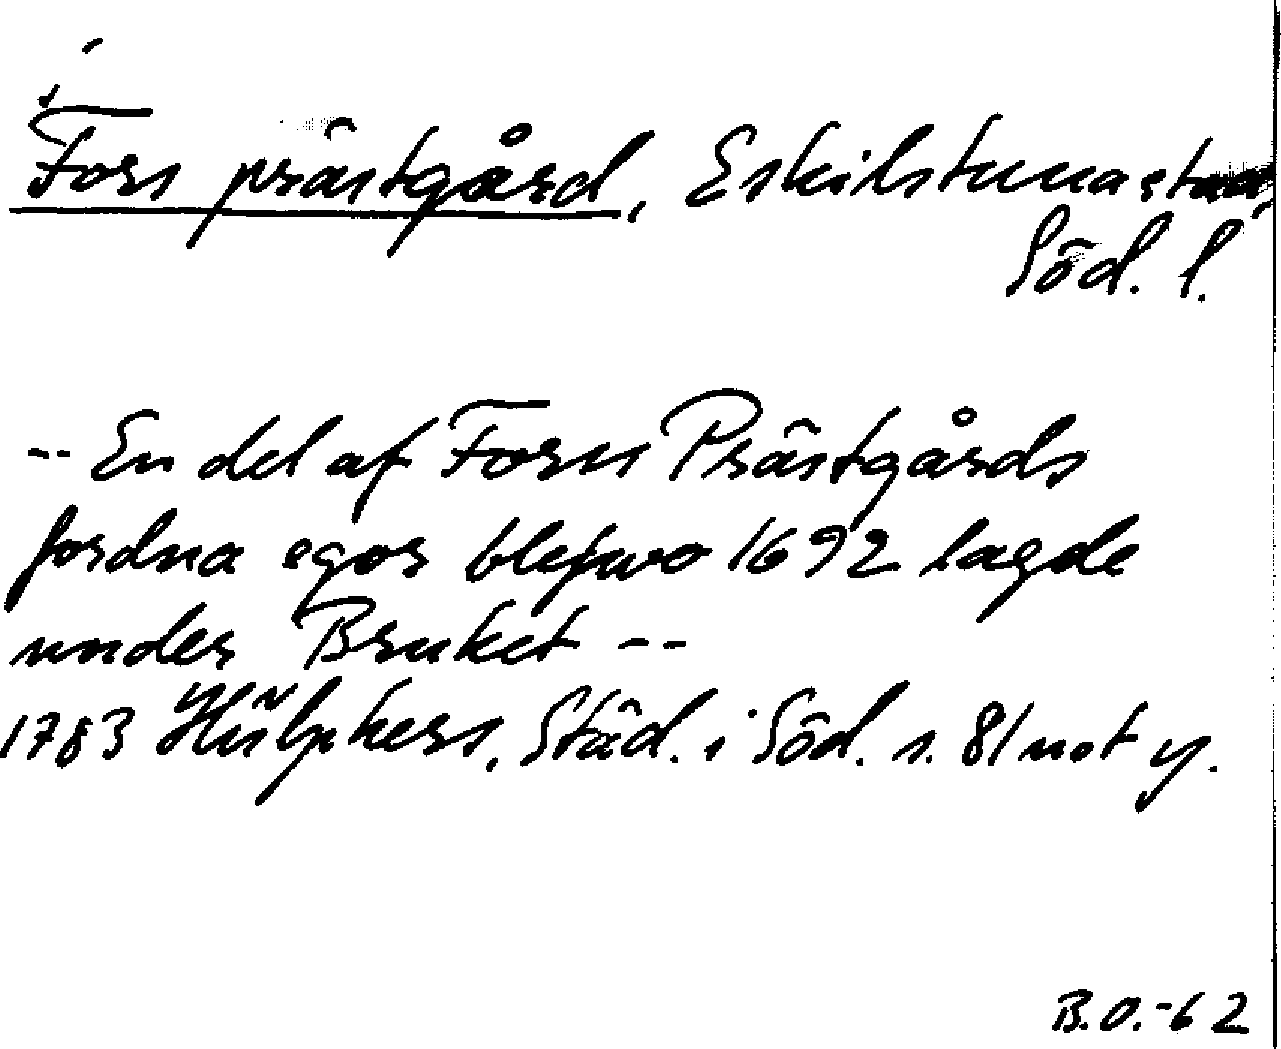 Fors prästgård, Eskilstuna stad,
Söd. l.
-- En del af Fors Prästgårds
fordna egor blefwo 1692 lagde
under Bruket --
1783 Hülphers, Städ. i Söd. s. 81 not y.
B.O.-62